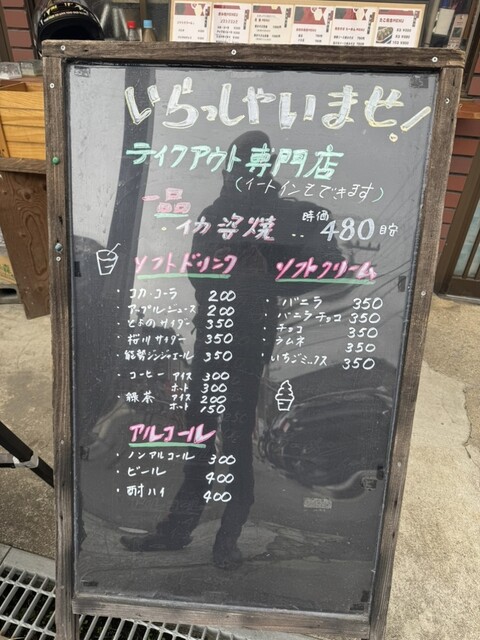 いらっしゃいませ!
テイクアウト専門店
(イートインもできます)
一品
・イカ姿焼 ‥ 時価 480円
ソフトドリンク
・コカ・コーラ 200
・アップルジュース 200
・とよのサイダー 350
・桜川サイダー 350
・能勢ジンジャエール 350
・コーヒー アイス 300
ホット 300
・緑茶 アイス 200
ホット 150
アルコール
・ノンアルコール 300
・ビール 400
・酎ハイ 400
ソフトクリーム
・バニラ 350
・バニラチョコ 350
・チョコ 350
・ラムネ 350
・いちごミックス 350